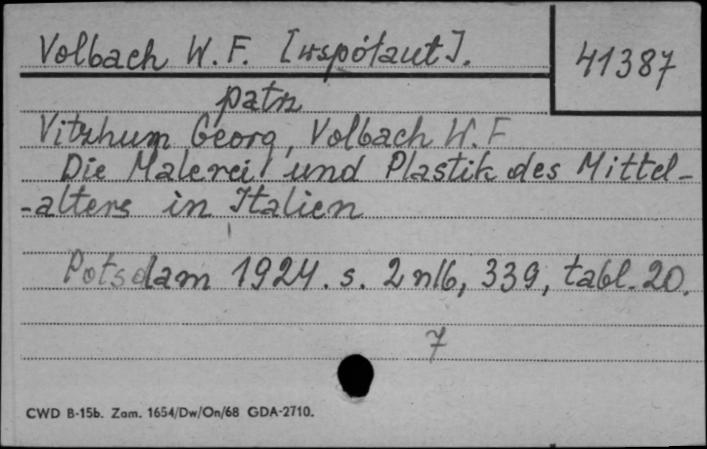 Volbach W. F. [współaut].
41387
patrz
Vitzhum Georg, Volbach W. F
Die Malerei und Plastik des Mittel-
-alters in Italien
Potsdam 1924. s. 2 nlb, 339, tabl. 20.
7
CWD B-15b. Zam. 1654/Dw/On/68 GDA-2710.